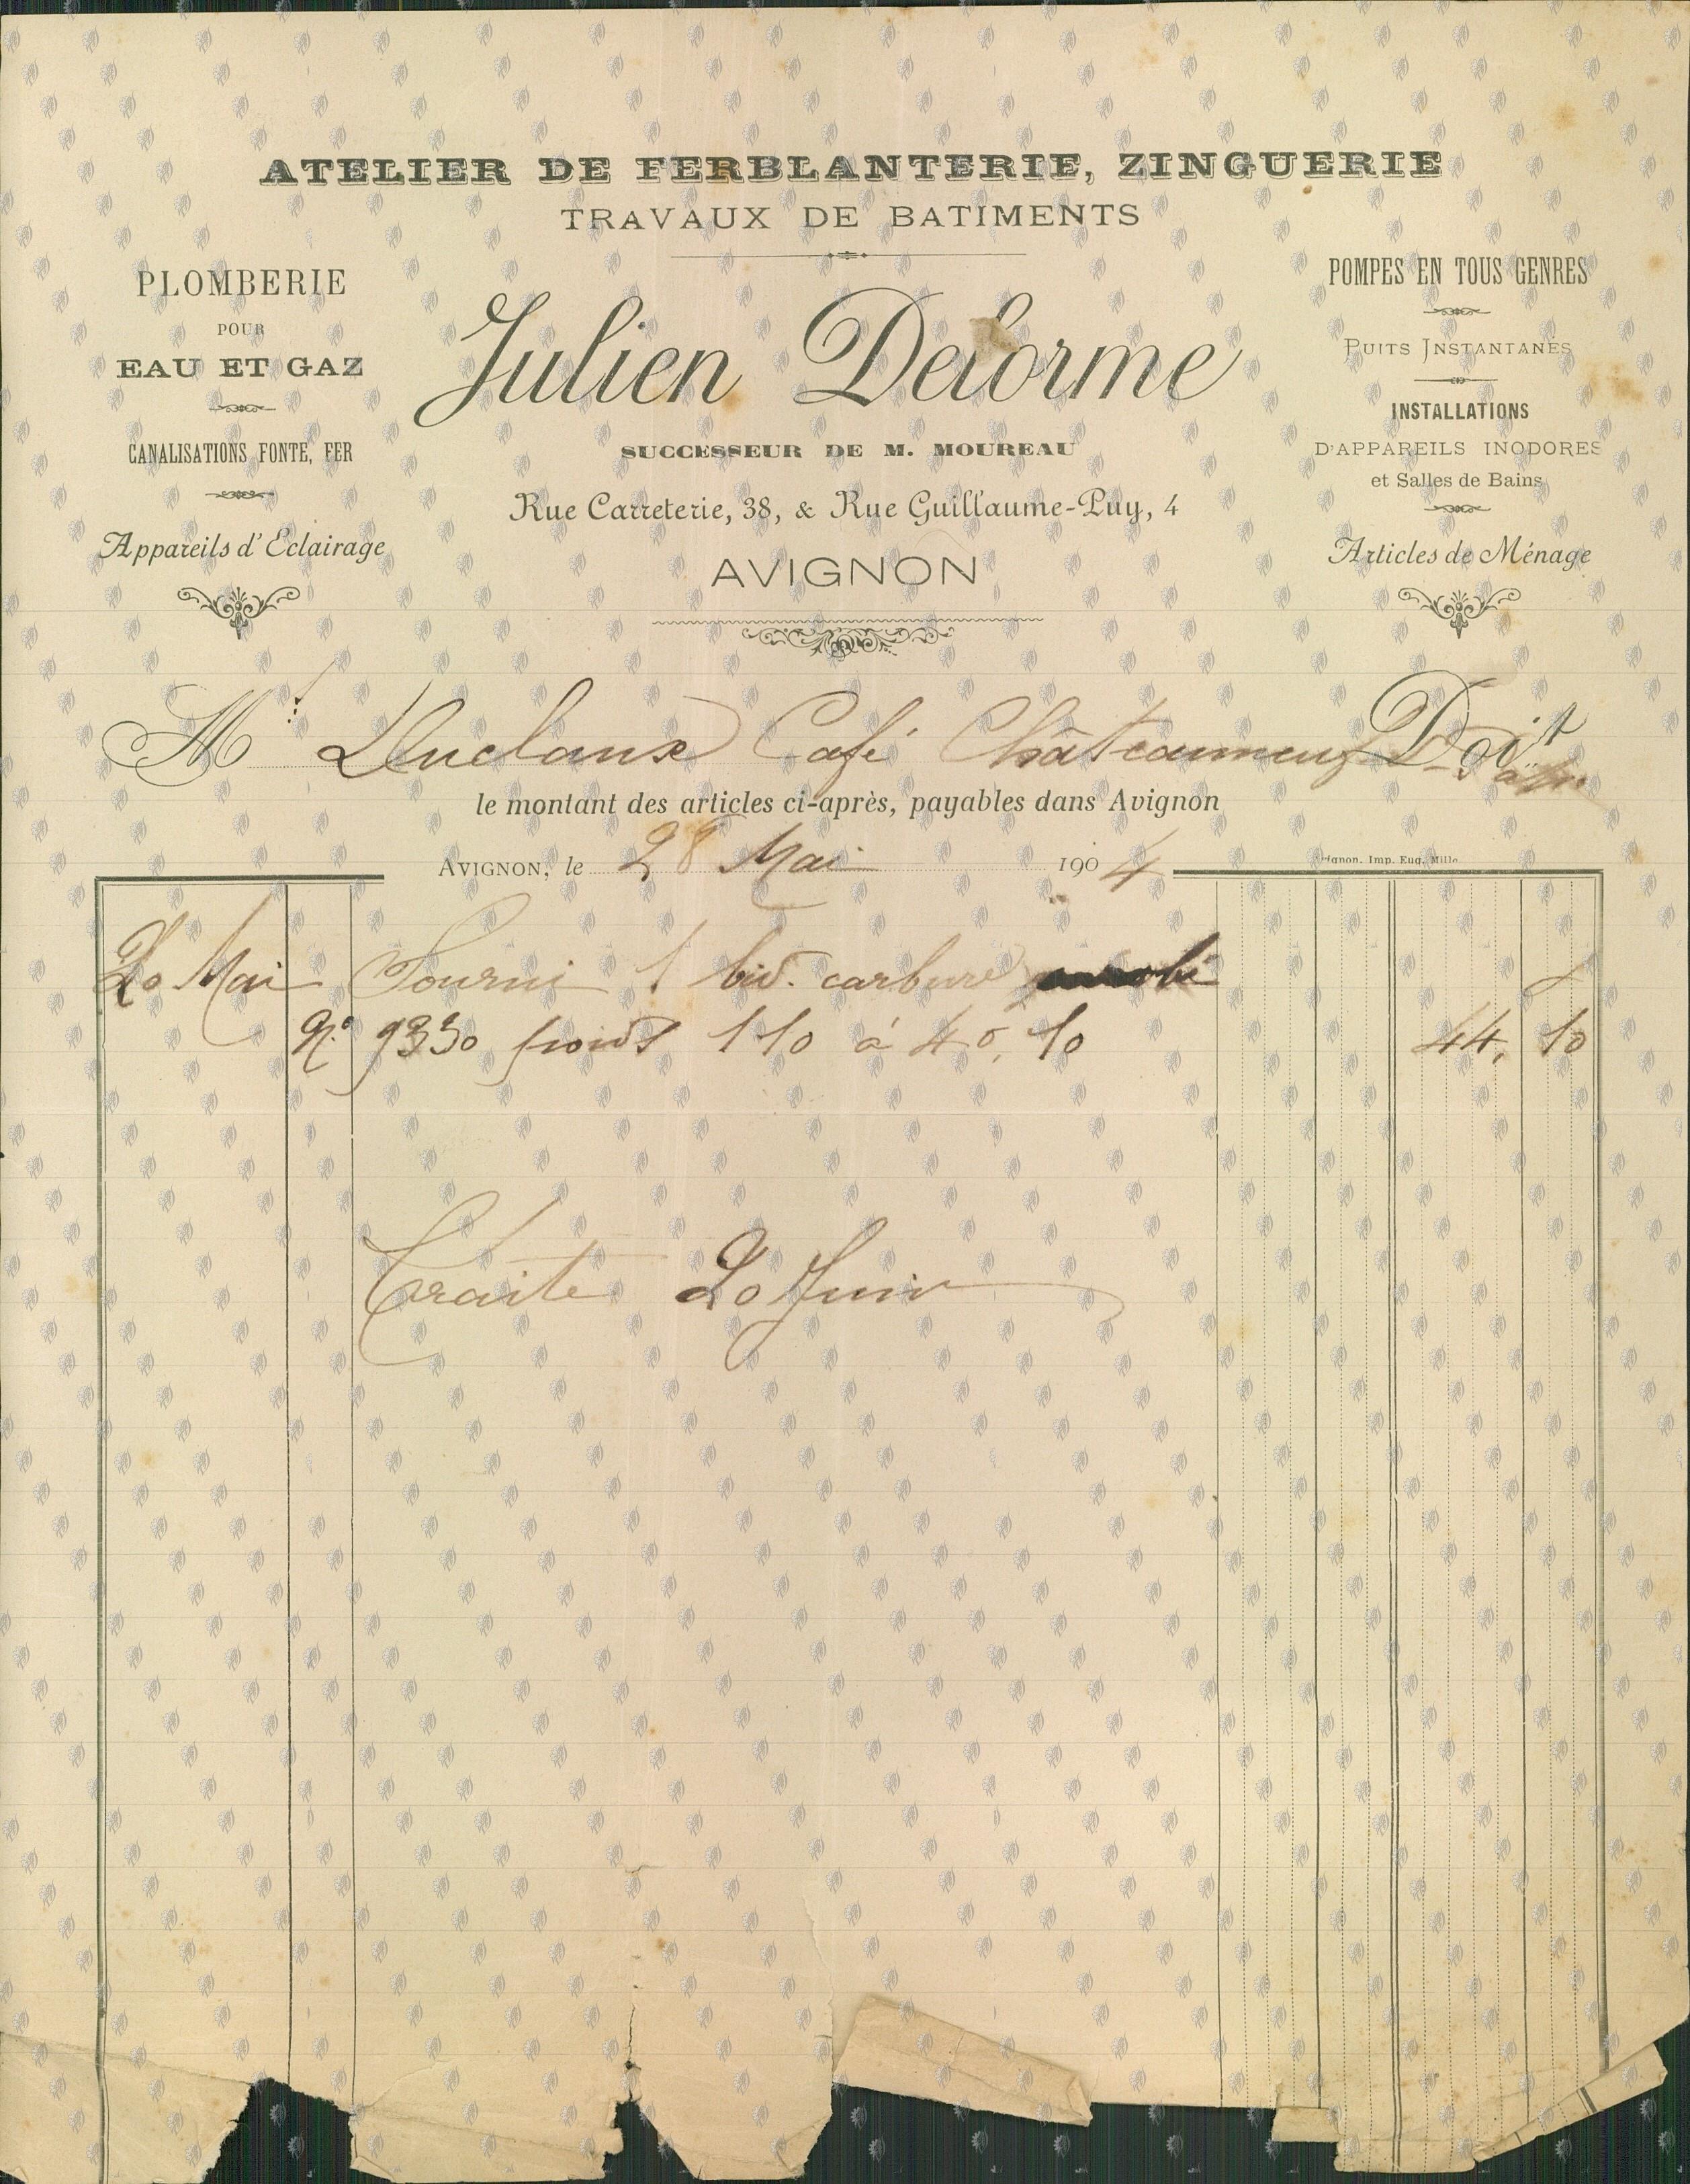 ATELIER DE FERBLANTERIE, ZINGUERIE
TRAVAUX DE BATIMENTS
PLOMBERIE
POUR
EAU ET GAZ
CANALISATIONS FONTE, FER
Appareils d'Eclairage
Julien Delorme
SUCCESSEUR DE M. MOUREAU
Rue Carreterie, 38, & Rue Guillaume-Puy, 4
AVIGNON
POMPES EN TOUS GENRES
PUITS INSTANTANÉS
INSTALLATIONS
D'APPAREILS INODORES
et Salles de Bains
Articles de Ménage
M Duclaux Café Châteauneuf Doit
le montant des articles ci-après, payables dans Avignon
AVIGNON, le 28 Mai 1904
Avignon. Imp. Eug. Mille
20 Mai Fourni 1 bid. carbure
No 9330 poids 110 à 40, 10 44, 10
Traite 20 Juin